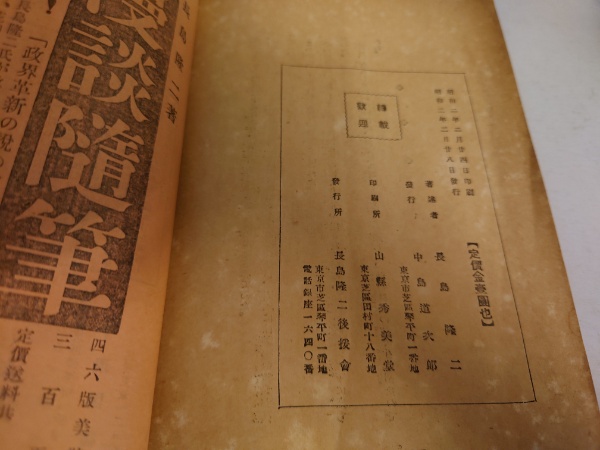 昭和二年二月廿四日印刷
昭和二年二月廿八日發行
【定價金壹圓也】
轉載
嚴禁
著譯者 長島隆二
發行 中島道次郎
東京市芝區琴平町一番地
印刷所 山縣秀美堂
東京芝區田村町十八番地
發行所 長島隆二後援會
東京市芝區琴平町一番地
電話銀座一六四〇番
長島隆二著
談隨筆
長島隆二氏
「政界革新の
四六版美
三百
定價送料共